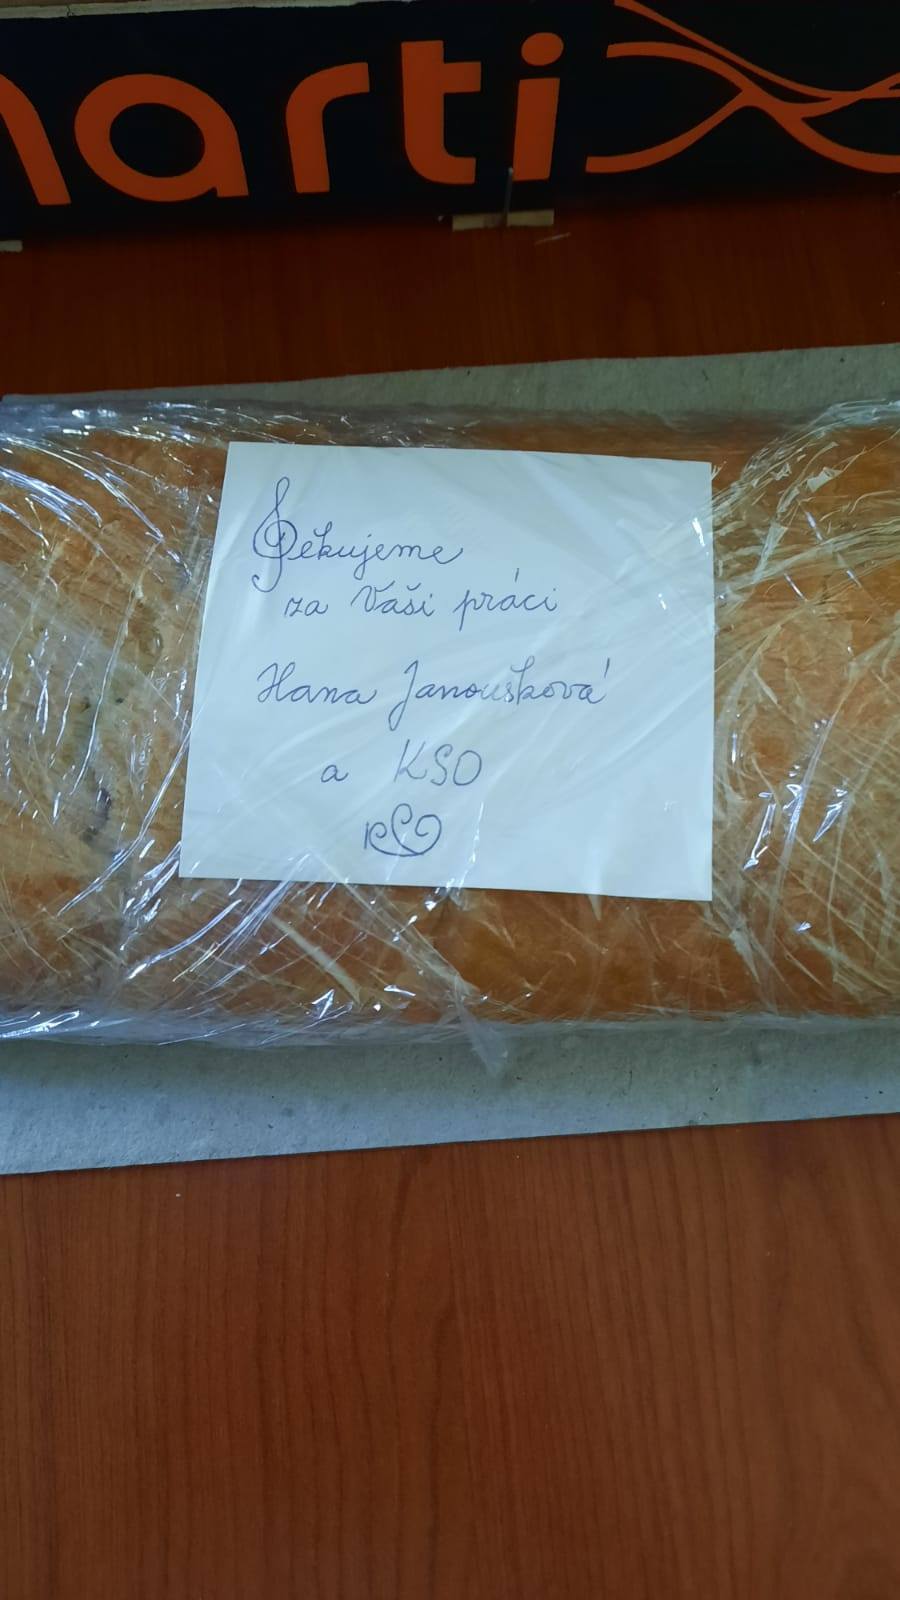 marti
Děkujeme
za Vaši práci
Hana Janoušková
a KSO
KSO